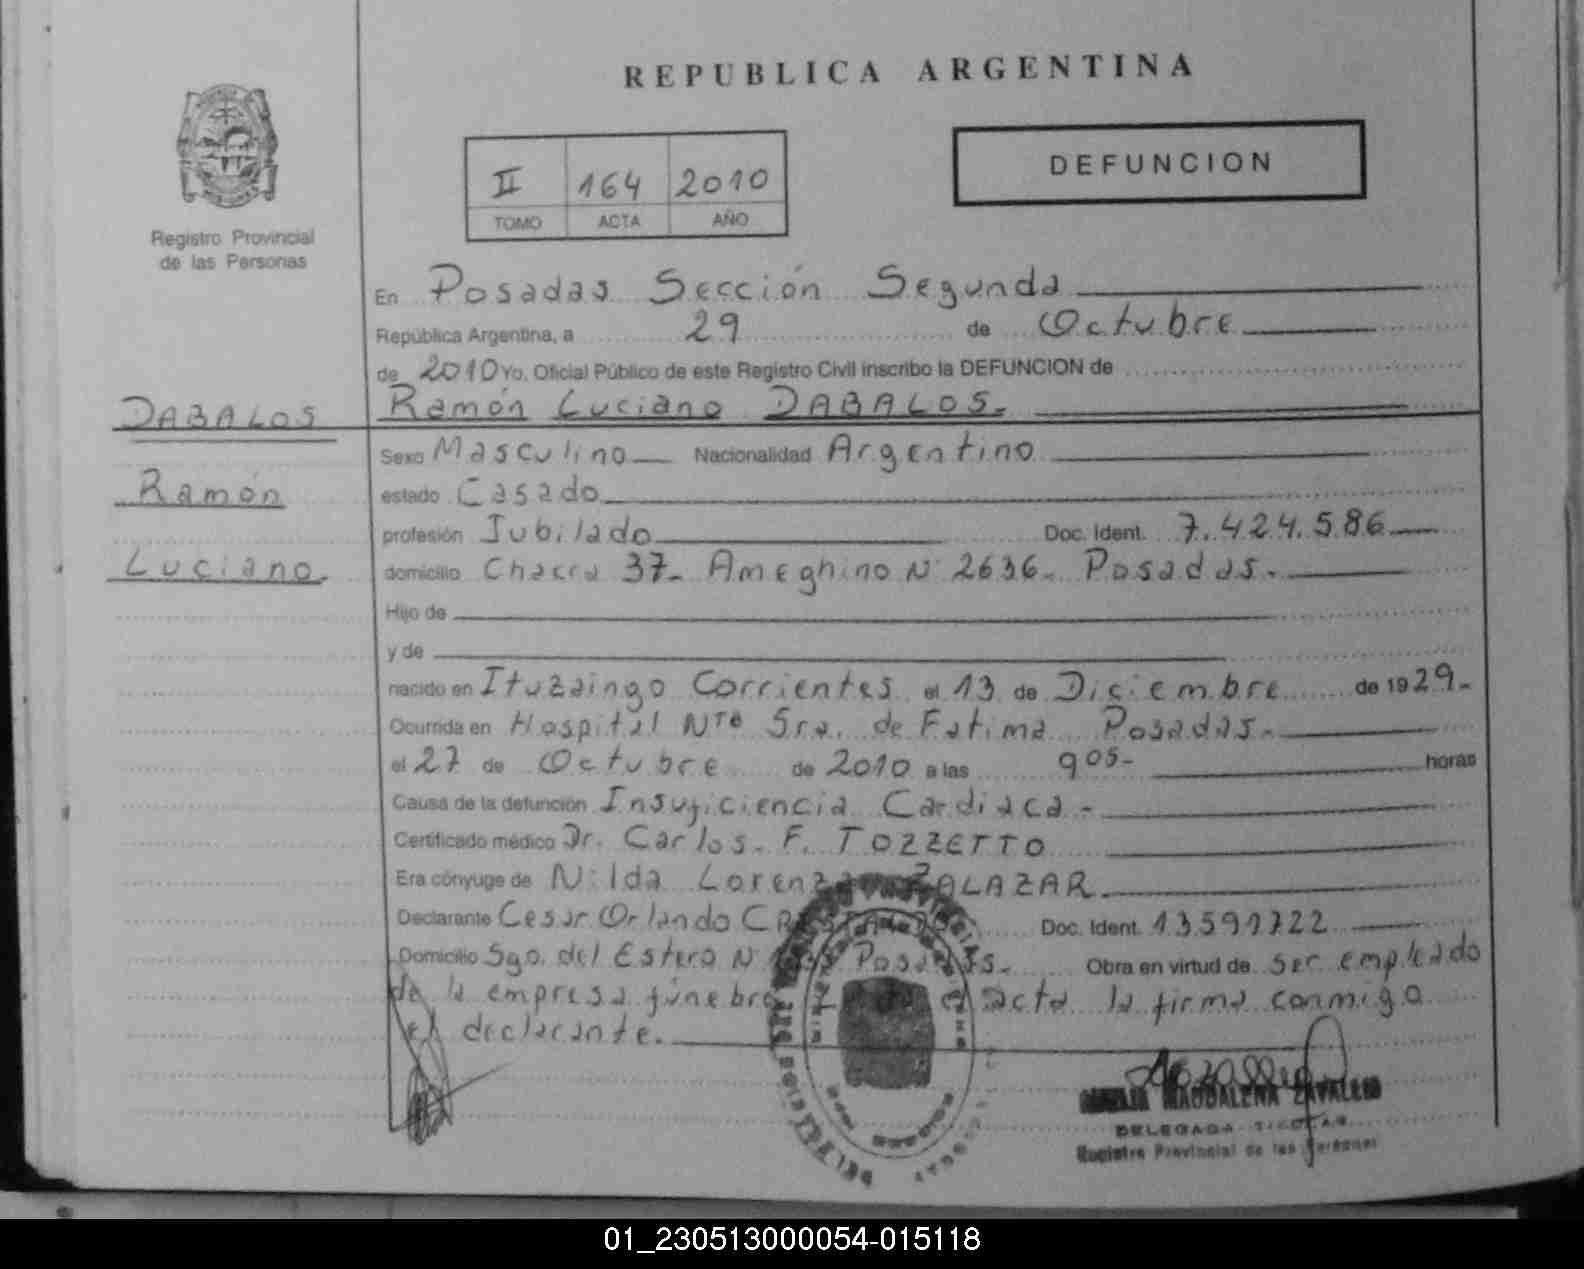 REPUBLICA ARGENTINA
DEFUNCION
II 164 2010
TOMO ACTA AÑO
Registro Provincial
de las Personas
En Posadas Sección Segunda
República Argentina, a 29 de Octubre
de 2010 Yo, Oficial Público de este Registro Civil inscribo la DEFUNCION de
Ramón Luciano DABALOS.
DABALOS
Ramón
Luciano.
Sexo Masculino Nacionalidad Argentino
estado Casado
profesión Jubilado Doc. Ident. 7.424.586
domicilio Chacra 37- Ameghino N° 2636- Posadas.-
Hijo de
y de
nacido en Ituzaingo Corrientes el 13 de Diciembre de 1929-
Ocurrida en Hospital Ntª Sra. de Fatima Posadas.-
el 27 de Octubre de 2010 a las 905- horas
Causa de la defunción Insuficiencia Cardiaca.-
Certificado médico Dr. Carlos. F. TOZZETTO
Era cónyuge de Nilda Lorenza ZALAZAR.
Declarante Cesar Orlando Doc. Ident. 13591722
Domicilio Sgo. del Estero N° Posadas. Obra en virtud de ser empleado
de la empresa fúnebre acta la firma conmigo
el declarante.
MAGDALENA ZAVALLO
DELEGADA TITULAR
Registro Provincial de las Personas
01_230513000054-015118